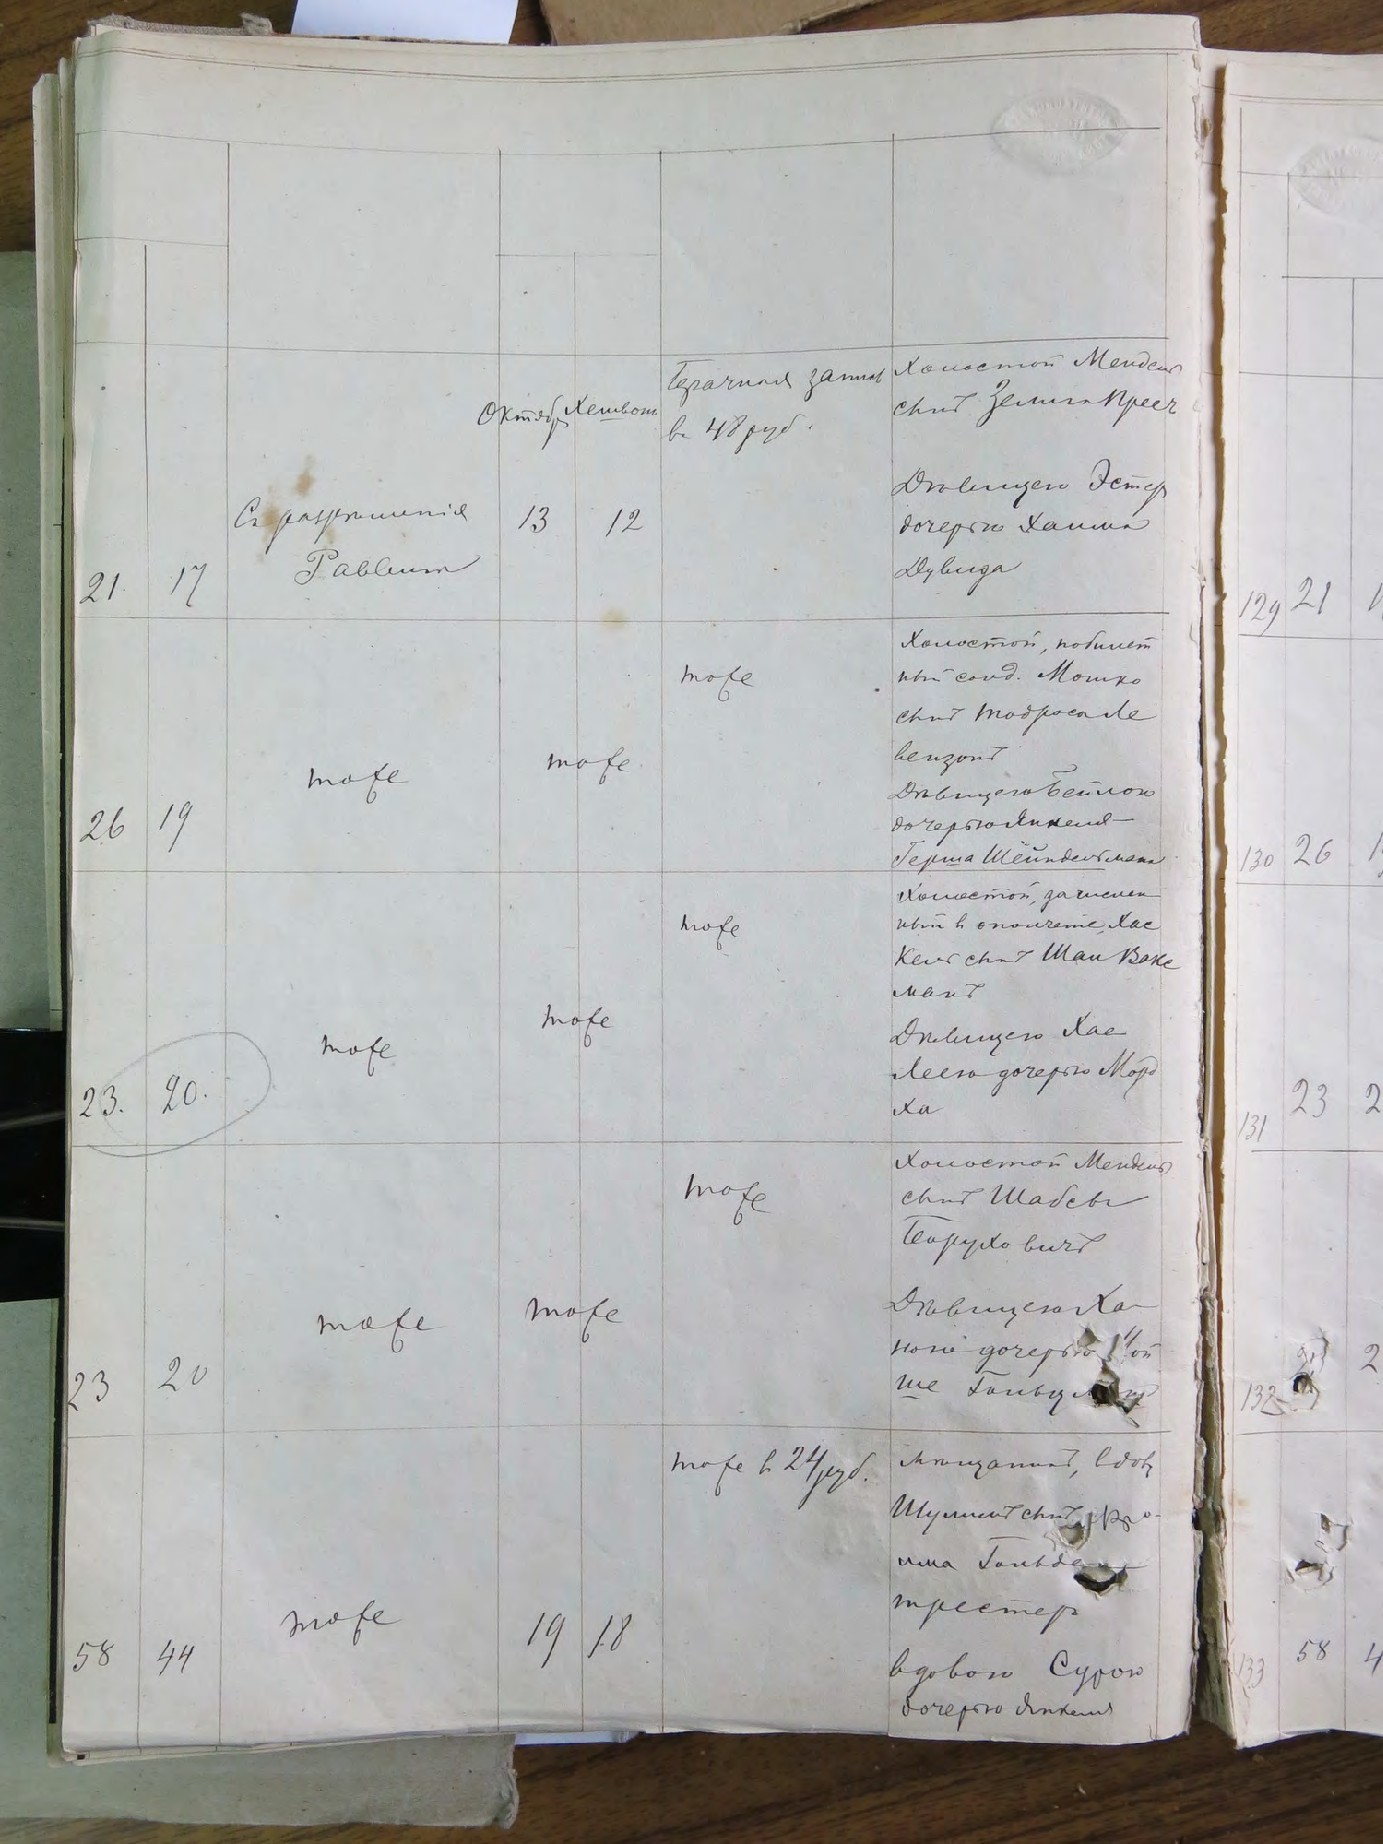 21 17
Съ разрѣшенія
Раввина
Октябр Хешвонъ
13 12
Брачная запись
въ 48 руб.
Холостой Мендель
сынъ Зелига Креч
Дѣвицею Эстер
дочерью Хаима
Дувида
26 19
тоже
тоже
тоже
Холостой, побилет
ный солд. Мошко
сынъ Тодроса Ле
вензонъ
Дѣвицею Бейлою
дочерью Янкеля
Герша Шейндельмана
23. 20.
тоже
тоже
тоже
Холостой, зачислен
ный в ополчение, Хас
кель сынъ Шаи Вакс
манъ
Дѣвицею Хае
Леею дочерью Морд
ха
23 20
тоже
тоже
тоже
Холостой Мендель
сынъ Шабсы
Боруховичъ
Дѣвицею Ха
ною дочерью
ше
58 44
тоже
19 18
тоже в 24 руб.
Мѣщанинъ, вдов
Шулимъ сынъ
има Гольде
трестеръ
вдовою Сурою
дочерью Янкеля
129 21
130 26
131 23 2
132 2
133 58 4